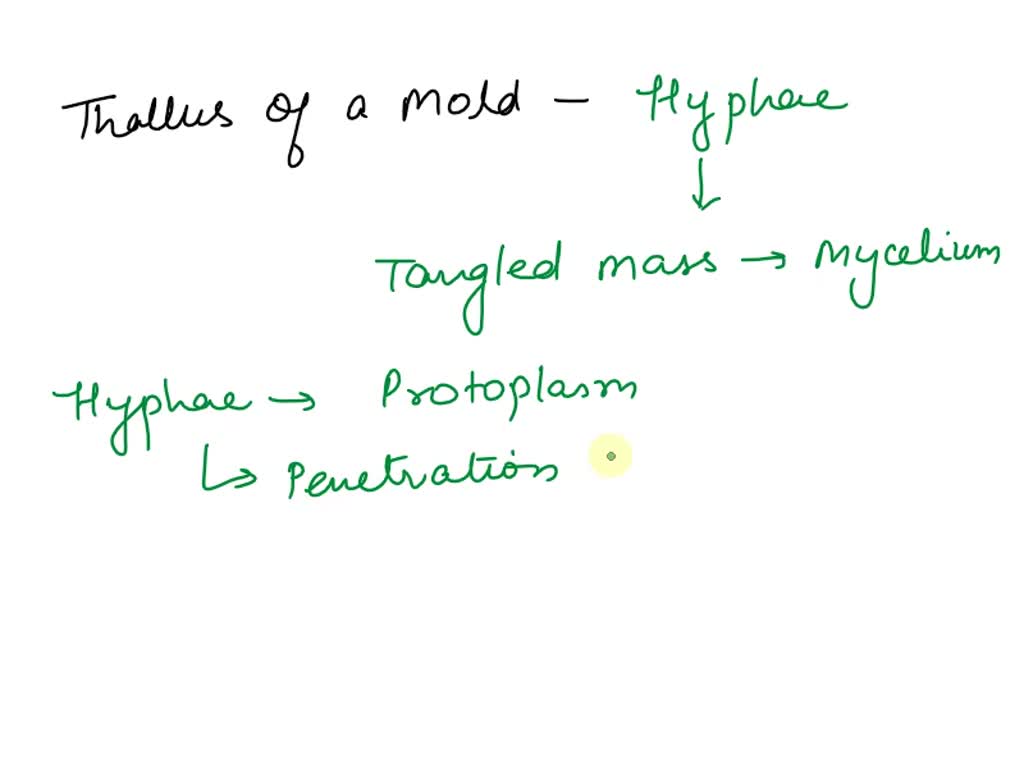 Thallus of a mold - Hyphae
↓
Tangled mass → Mycelium
Hyphae → Protoplasm
↳ Penetration